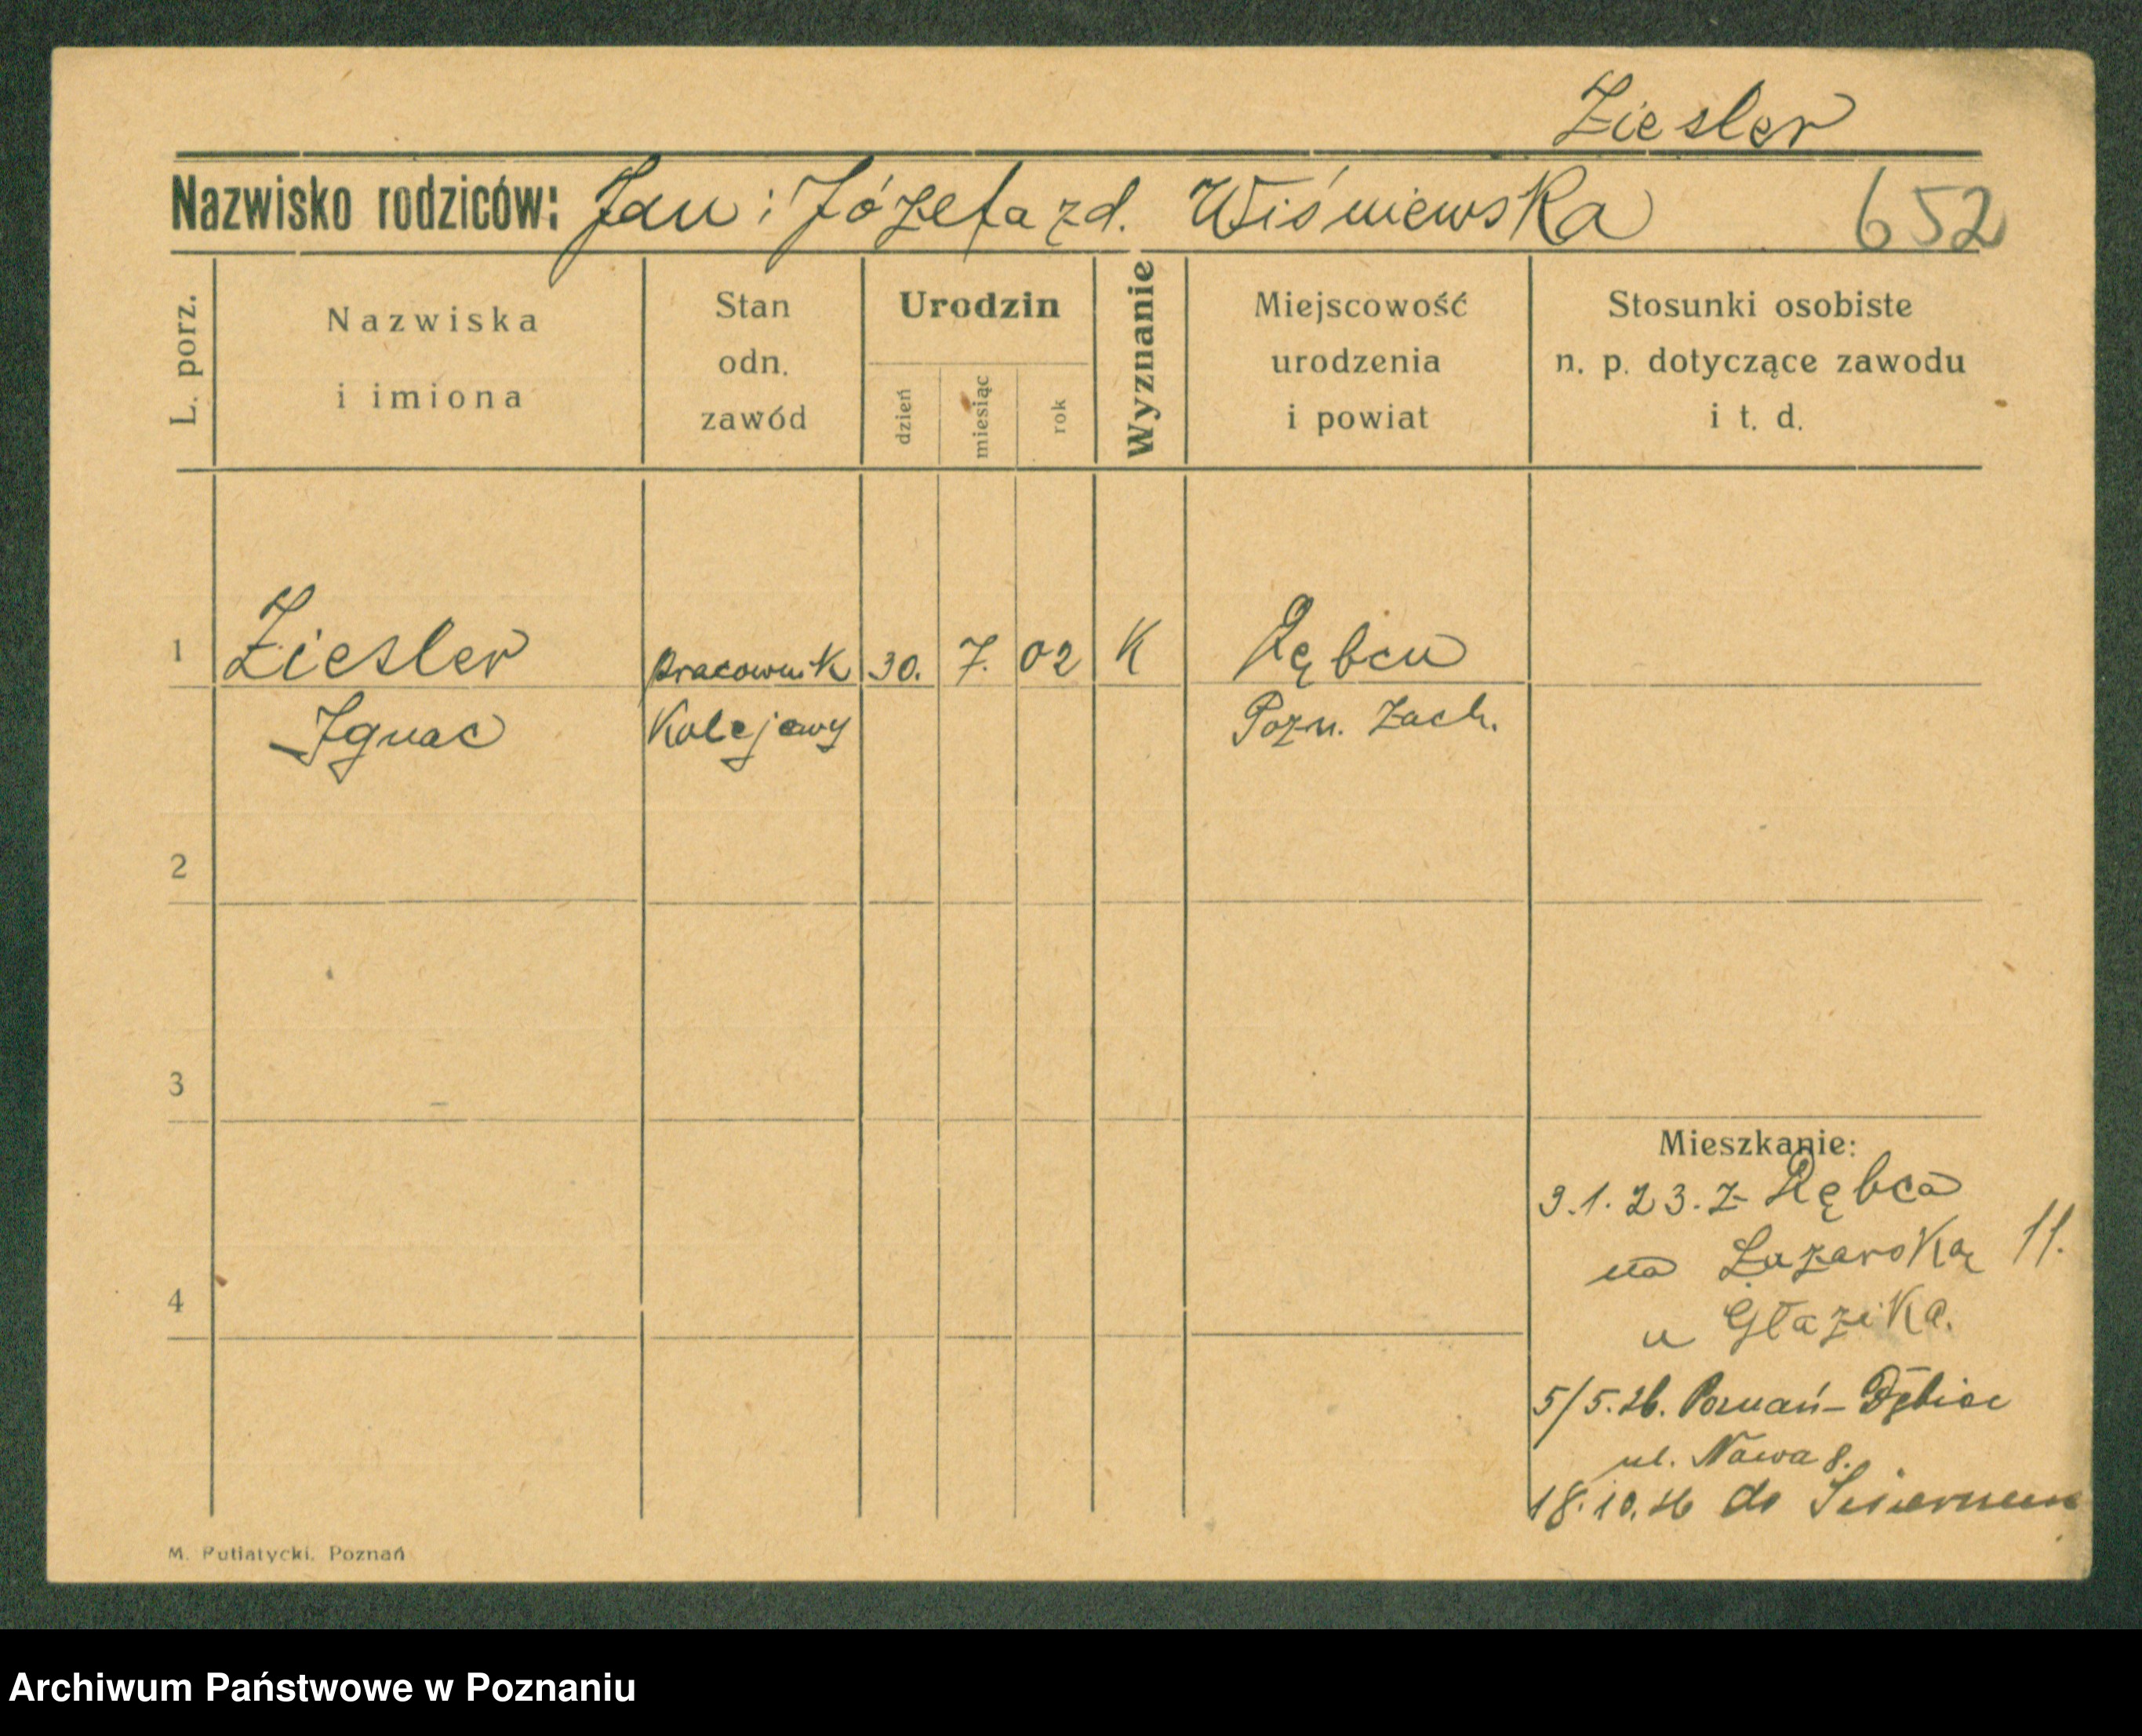 Ziesler
Nazwisko rodziców: Jan i Józefa zd. Wiśniewska 652
L. porz.
Nazwiska
i imiona
Stan
odn.
zawód
Urodzin
dzień
miesiąc
rok
Wyznanie
Miejscowość
urodzenia
i powiat
Stosunki osobiste
n. p. dotyczące zawodu
i t. d.
1 Ziesler pracownik 30. 7. 02 K
Ignac Kolejowy Pozn. Zach.
2
3
4
Mieszkanie:
3.1.23. z
na Łazarską 11.
u Głazika.
5/5.26. Poznań-Dębiec
ul. Nowa 8.
18.10.26 do
M. Putiatycki. Poznań
Archiwum Państwowe w Poznaniu